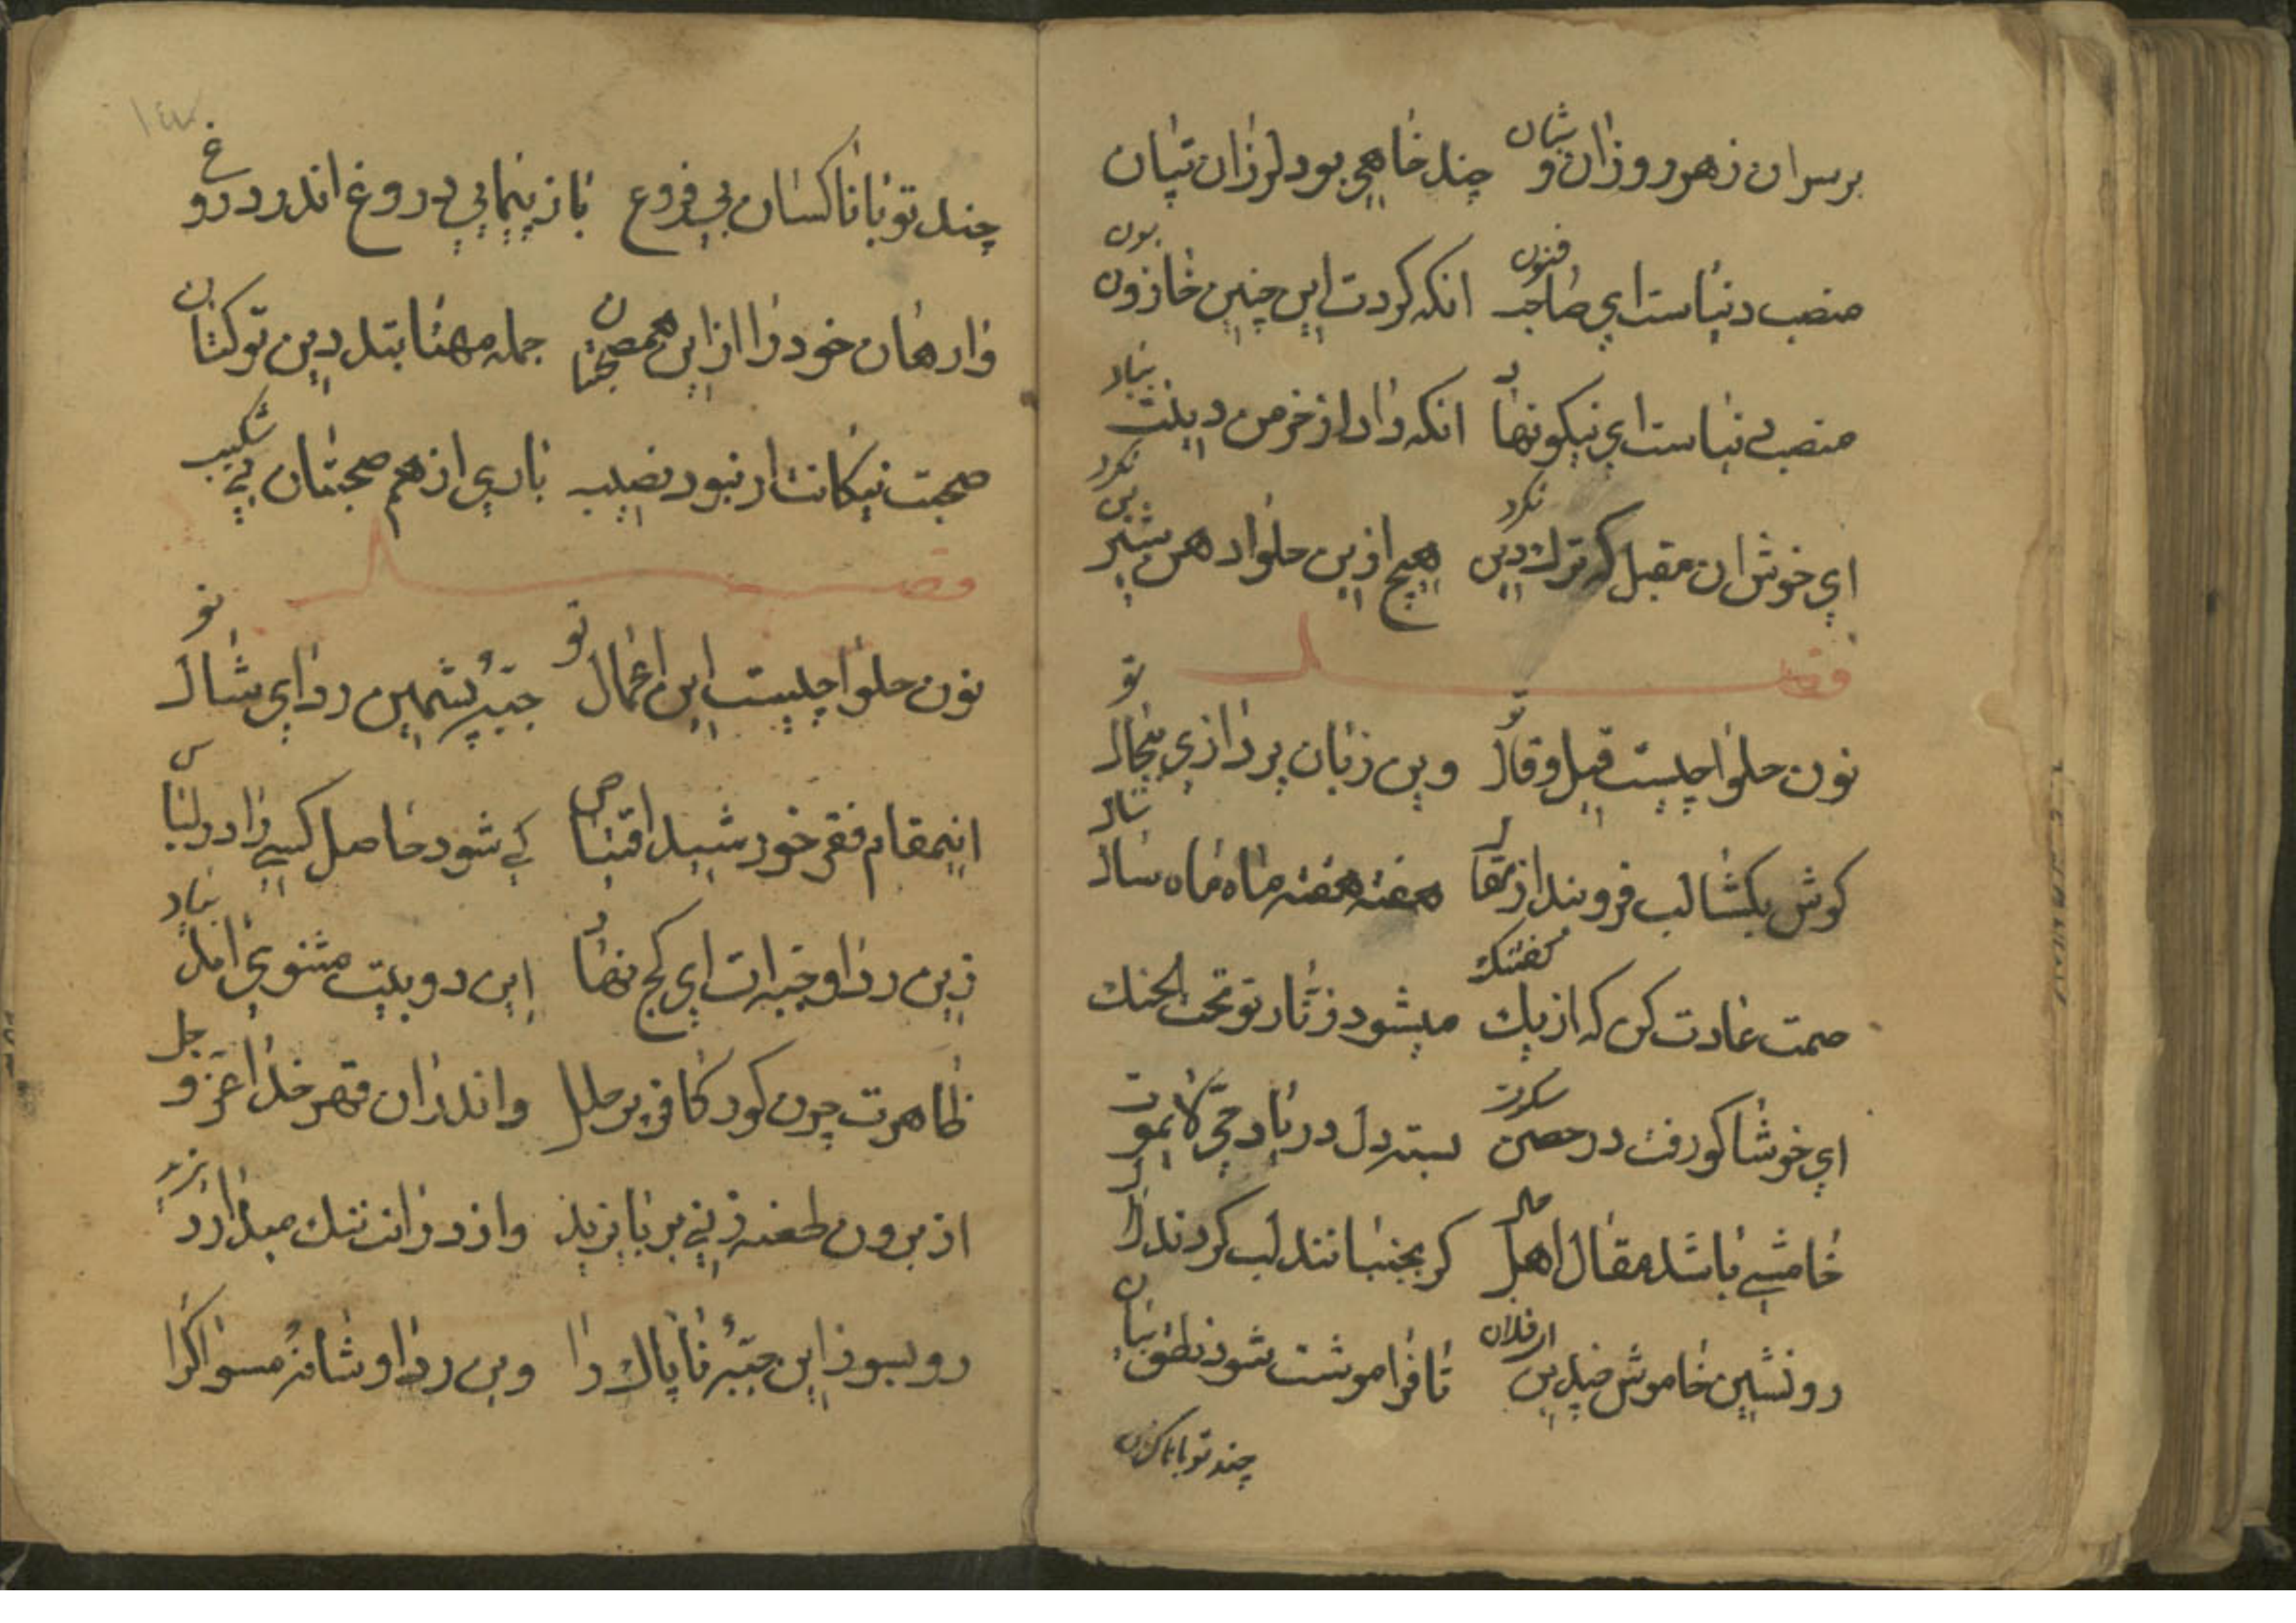 برسران زهر روزان و شبان چند خاهی بود لرزان تپان
منصب دنیاست ای صاحب فنون انکه کردت این چنین خار زبون
منصب دنیاست ای نیکو نهاد انکه داد از خرمن دینت بباد
ای خوش ان مقبل که ترک دین نکرد هیچ ازین حلوا دهن شیرین نکرد
فصل
نون حلوا چیست قیل و قال تو وین زبان پردازی بیجال تو
کوش بکشا لب فروبند از مقال هفته هفته ماه ماه سال سال
صمت عادت کن که از یک کفتنک میشود زنار تو تحت الحنک
ای خوشا کو رفت در حصن سکوت بسته دل در یاد حی لا یموت
خامشی باشد مقال اهل حال کر بجنبانند لب کردند لال
رو نشین خاموش چندین ای فلان تا فراموشت شود نطق بیان
چند تو با ناکسان
١٤٧
چند تو با ناکسان بی فروع باز پیمایی دروغ اندر دروغ
وارهان خود را ازاین همصحبتان جمله مهتاب بتند دین تو کتان
صحبت نیکانت ار نبود نصیب باری از هم صحبتان بی شکیب
فصل
نون حلوا چیست این اعمال تو جبه پشمین ردای شال تو
اینمقام فقر خورشید اقتباص کی شود حاصل کسی را در لباس
زین ردا و جبه ات ای کج نهاد این دو بیت مثنوی امد بیاد
ظاهرت چون کور کافر پر حلل واندران قهر خدا عز و جل
از برون طعنه زنی بر بایزید واز درانت ننک میدارد یزید
رو بسوز این جبه ناپاک را وین ردا و شانه مسواک را